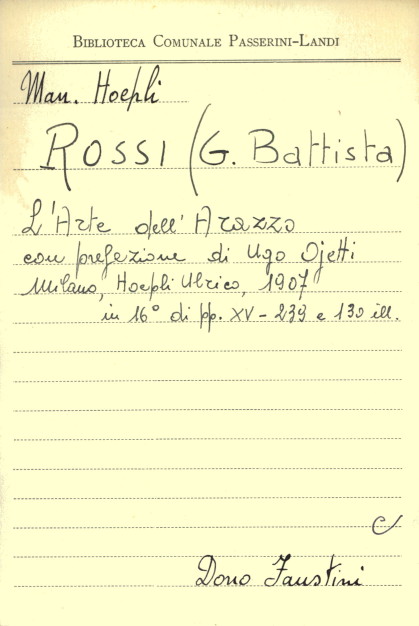 BIBLIOTECA COMUNALE PASSERINI-LANDI
Man. Hoepli
ROSSI (G. Battista)
L'Arte dell'Arazzo
con prefezione di Ugo Ojetti
Milano, Hoepli Ulrico, 1907
in 16° di pp. XV - 239 e 130 ill.
C
Dono Faustini